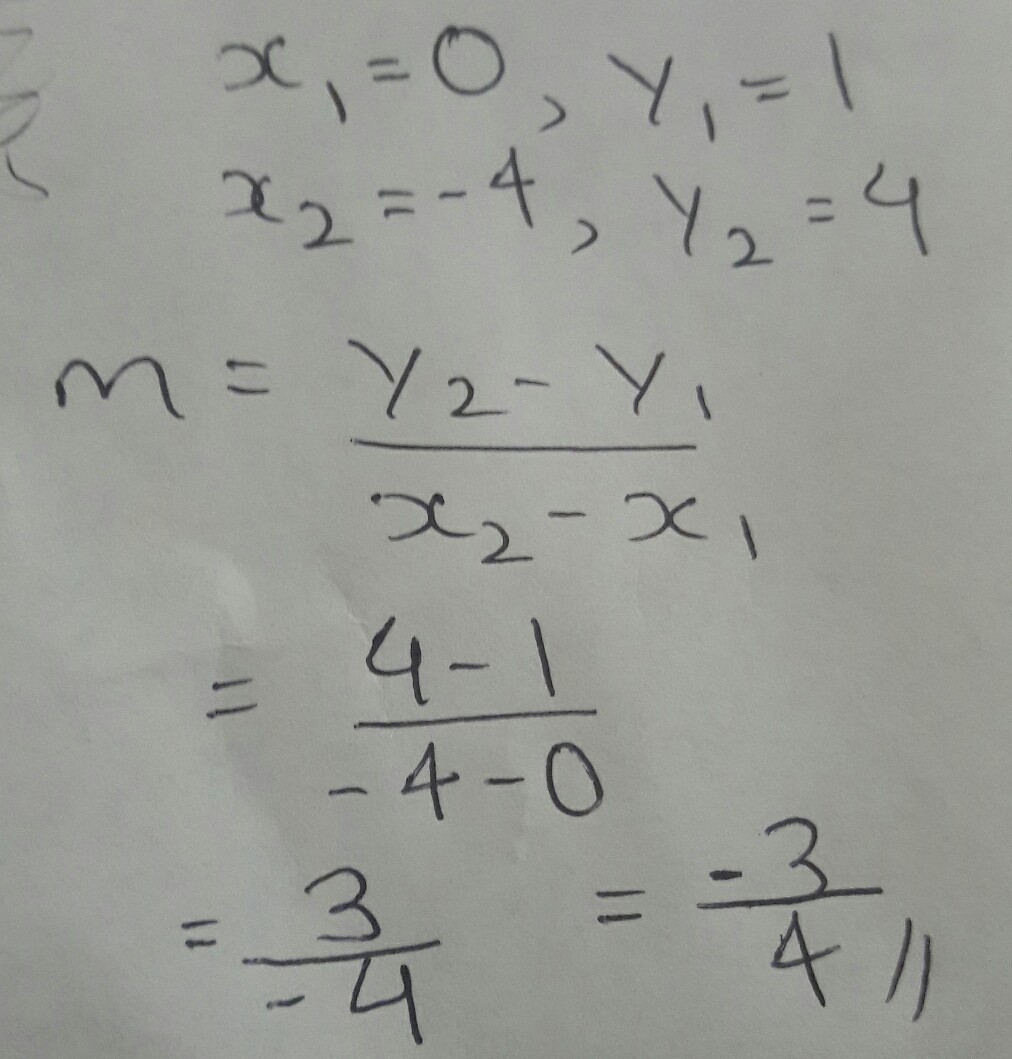 x₁ = 0, y₁ = 1
x₂ = -4, y₂ = 4
m = y₂ - y₁
x₂ - x₁
= 4 - 1
-4 - 0
= 3 = -3
-4 4 //